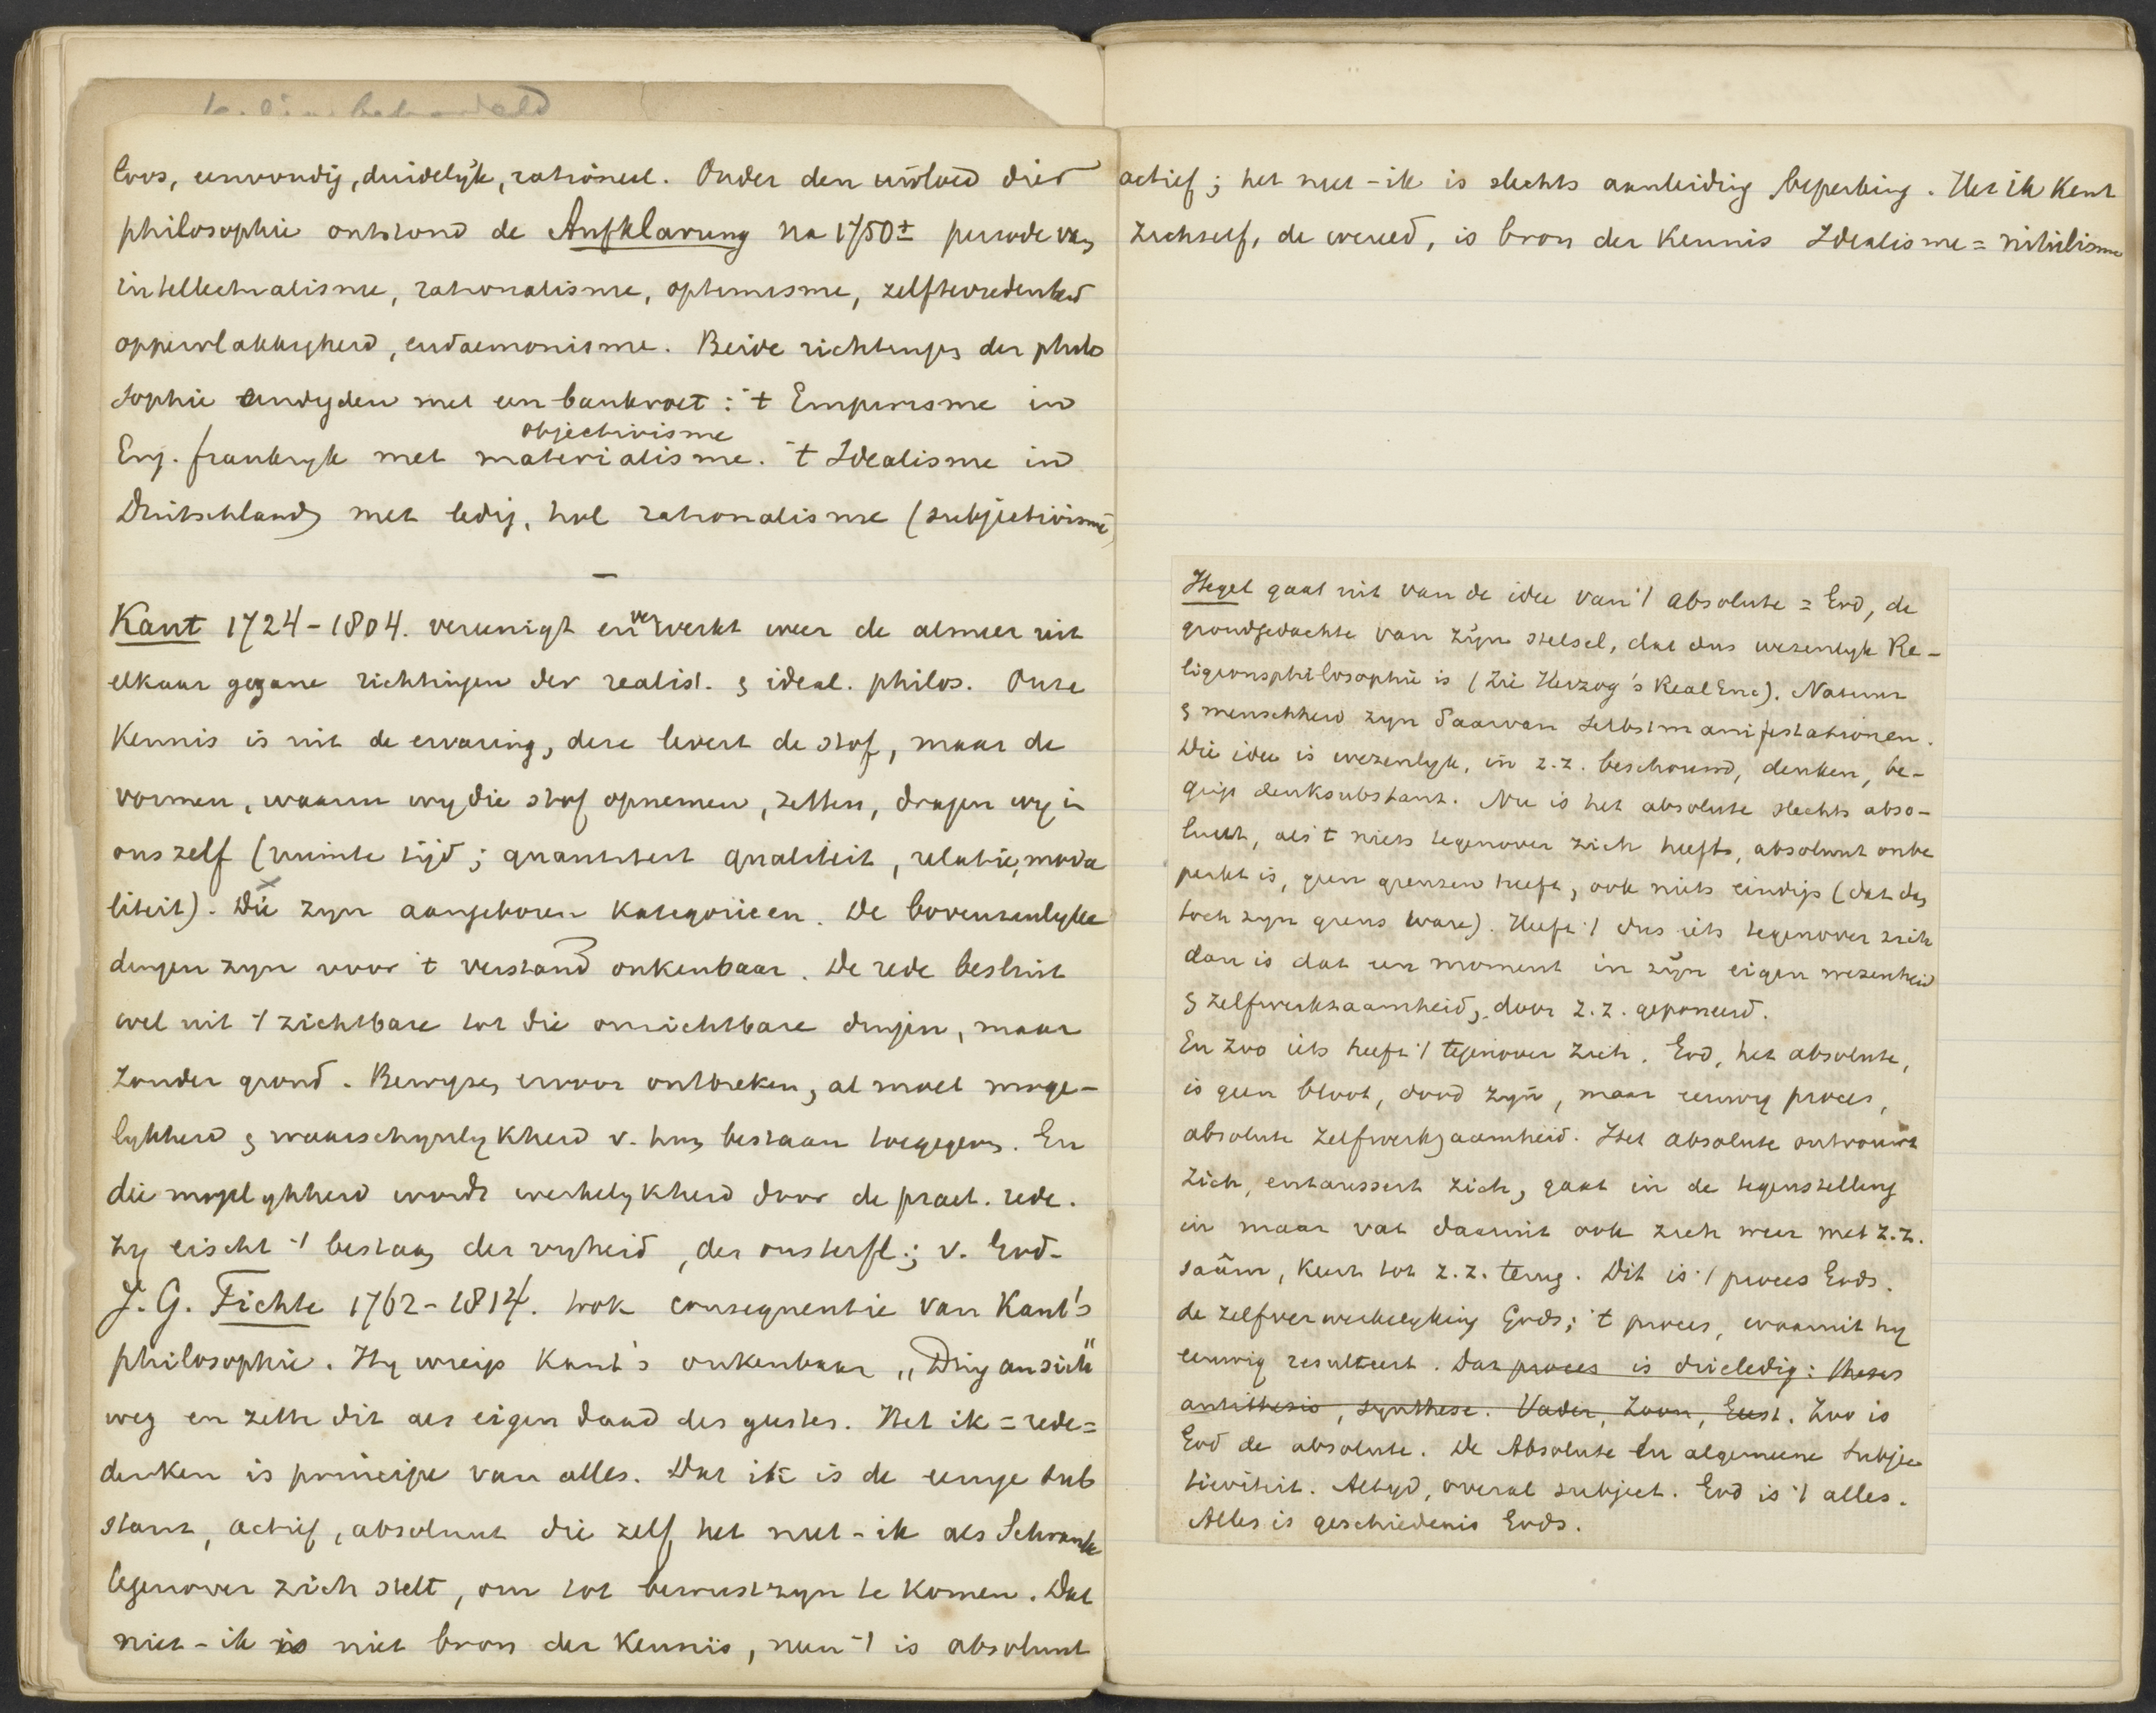 loos, eenvoudig, duidelijk, rationeel. Onder den invloed dier
philosophie ontstond de Aufklarung na 1750± periode van
intellectualisme, rationalisme, optimisme, zelftevredenheid
oppervlakkigheid, eudaemonisme. Beide richtingen der philo
sophie eindigden met een bankroet: 't Empirisme in
objectivisme
Eng. frankryk met materialisme. 't Idealisme in
Duitschland met ledig, hol rationalisme (subjectivisme)
—
Kant 1724-1804. vereenigt en verwerkt weer de almeer uit
elkaar gegane richtingen der realist. & ideal. philos. Onze
Kennis is uit de ervaring, deze levert de stof, maar de
vormen, waarin wy die stof opnemen, zetten, dragen wy in
ons zelf (ruimte tijd; quantiteit qualiteit, relatie, moda
liteit). Die zyn aangeboren Kategorieen. De bovenzinlyke
dingen zyn voor 't verstand onkenbaar. De rede besluit
wel uit 't zichtbare tot die onzichtbare dingen, maar
zonder grond. Bewyzen ervoor ontbreken, al moet moge-
lykheid & waarschynlykheid v. hun bestaan toegegeven. En
die mogelykheid wordt werkelykheid door de pract. rede.
Zy eischt 't bestaan der vryheid, der onsterfl.; v. God-
J. G. Fichte 1762-1814. trok consequentie van Kant's
philosophie. Hy wierp Kant's onkenbaar „Ding ansich"
weg en zette dit als eigen daad des geestes. Het ik = rede =
denken is principe van alles. Dat ik is de eenige sub
stant, actief, absoluut die zelf het niet-ik als Schranke
tegenover zich stelt, om tot bewustzyn te komen. Dat
niet-ik is niet bron der Kennis, neen 't is absoluut
actief; het niet-ik is slechts aanleiding beperking. Het ik Kent
zichzelf, de wereld, is bron der Kennis Idealisme = nihilisme
Hegel gaat uit van de idee van 't absolute = God, de
grondgedachte van zijn stelsel, dat dus wezenlyk Re-
ligionsphilosophie is (Zie Herzog's RealEnc). Natuur
& menschheid zyn daarvan Selbstmanifestationen.
Die idee is wezenlyk, in z.z. beschouwd, denken, be-
grip denksubstant. Nu is het absolute slechts abso-
luut, als 't niets tegenover zich heeft, absoluut onbe
perkt is, geen grenzen heeft, ook niets eindigs (dat dan
toch zyn grens ware). Heeft 't dus iets tegenover zich
dan is dat een moment in zijn eigen wezenheid
& zelfwerkzaamheid, door z.z. geponeerd.
En zoo iets heeft 't tegenover zich. God, het absolute,
is geen bloot, dood zyn, maar eeuwig proces,
absolute zelfwerkzaamheid. Het absolute ontvouwt
zich, entaussert zich, gaat in de tegenstelling
in maar vat daaruit ook zich weer met z.z.
saâm, Keert tot z.z. terug. Dit is 't proces Gods.
de zelfverwerkelyking Gods; 't proces, waaruit hy
eeuwig resulteert. Dat proces is drieledig: theses
antithesis, synthese. Vader, Zoon, Geest. Zoo is
God de absolute. De Absolute En algemeene Subjec
tiviteit. Altyd, overal subject. God is 't alles.
Alles is geschiedenis Gods.